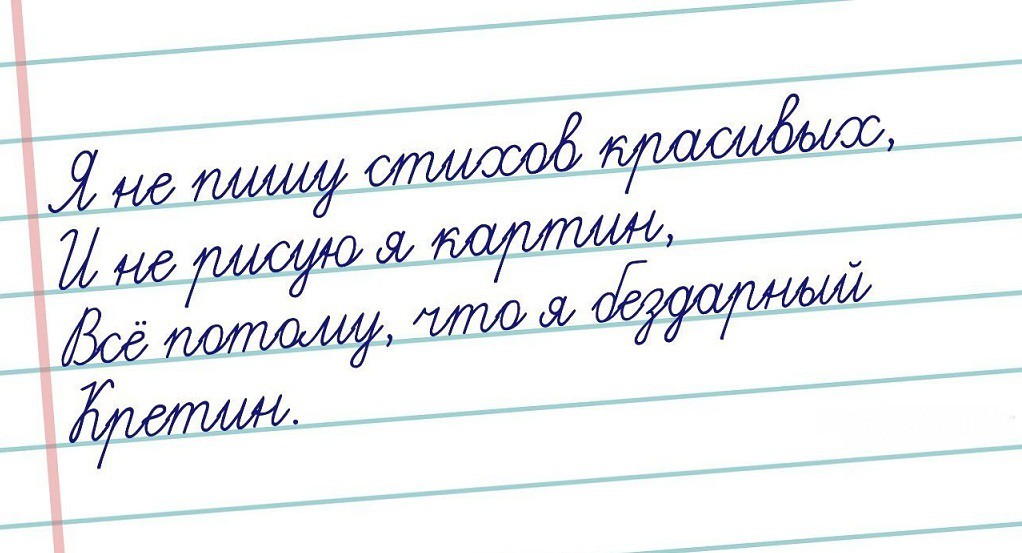 Я не пишу стихов красивых,
И не рисую я картин,
Всё потому, что я бездарный
Кретин.